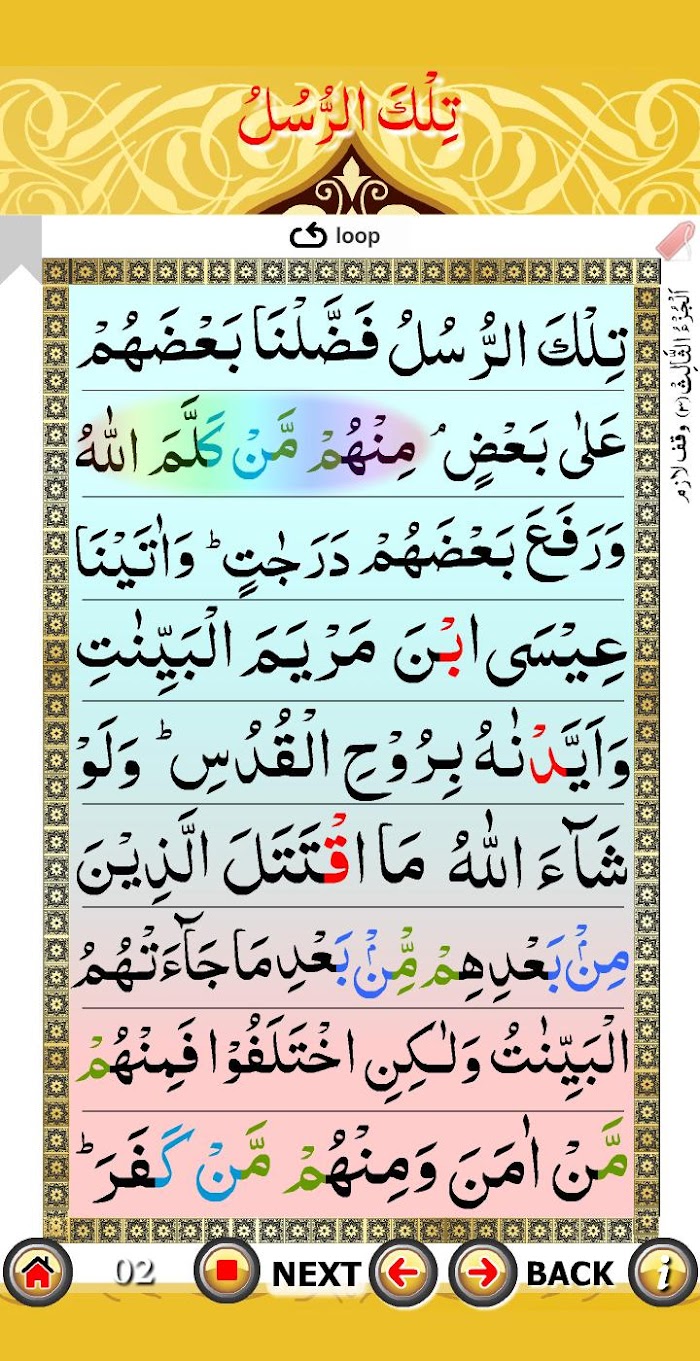 تِلْكَ الرُّسُلُ
loop
اَلْجُزْءُ الثَّالِثُ (٣) وقف لازم
تِلْكَ الرُّسُلُ فَضَّلْنَا بَعْضَهُمْ
عَلٰى بَعْضٍ ۘ مِنْهُمْ مَّنْ كَلَّمَ اللّٰهُ
وَرَفَعَ بَعْضَهُمْ دَرَجٰتٍ ؕ وَاٰتَيْنَا
عِيْسَى ابْنَ مَرْيَمَ الْبَيِّنٰتِ
وَاَيَّدْنٰهُ بِرُوْحِ الْقُدُسِ ؕ وَلَوْ
شَآءَ اللّٰهُ مَا اقْتَتَلَ الَّذِيْنَ
مِنْۢ بَعْدِهِمْ مِّنْۢ بَعْدِ مَا جَآءَتْهُمُ
الْبَيِّنٰتُ وَلٰكِنِ اخْتَلَفُوْا فَمِنْهُمْ
مَّنْ اٰمَنَ وَمِنْهُمْ مَّنْ كَفَرَ ؕ
02 NEXT BACK i